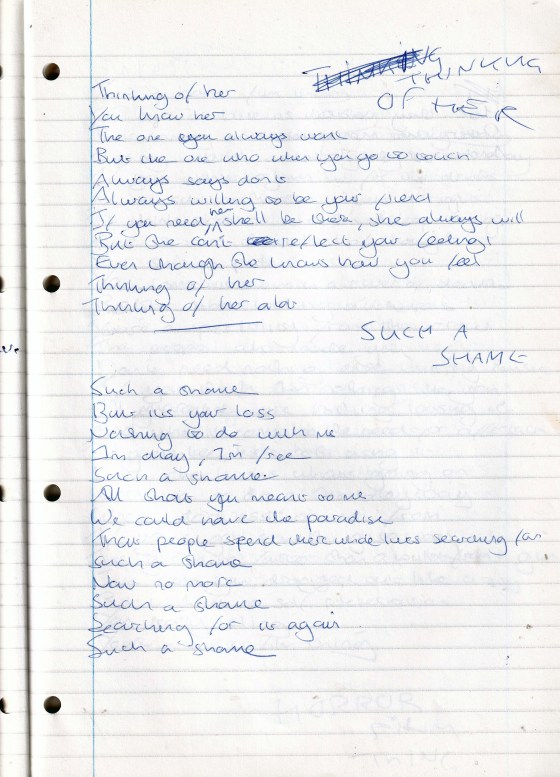 THINKING
OF HER
Thinking of her
You know her
The one you always want
But the one who when you go to touch
Always says dont
Always willing to be your friend
If you need her, shell be there, she always will
But she cant reflect your feelings
Even though she knows how you feel
Thinking of her
Thinking of her alot
SUCH A
SHAME
Such a shame
But its your loss
Nothing to do with me
Im okay, Im free
Such a shame
All that you meant to me
We could have the paradise
That people spend there whole lives searching for
such a shame
Now no more
Such a shame
Searching for it again
Such a shame